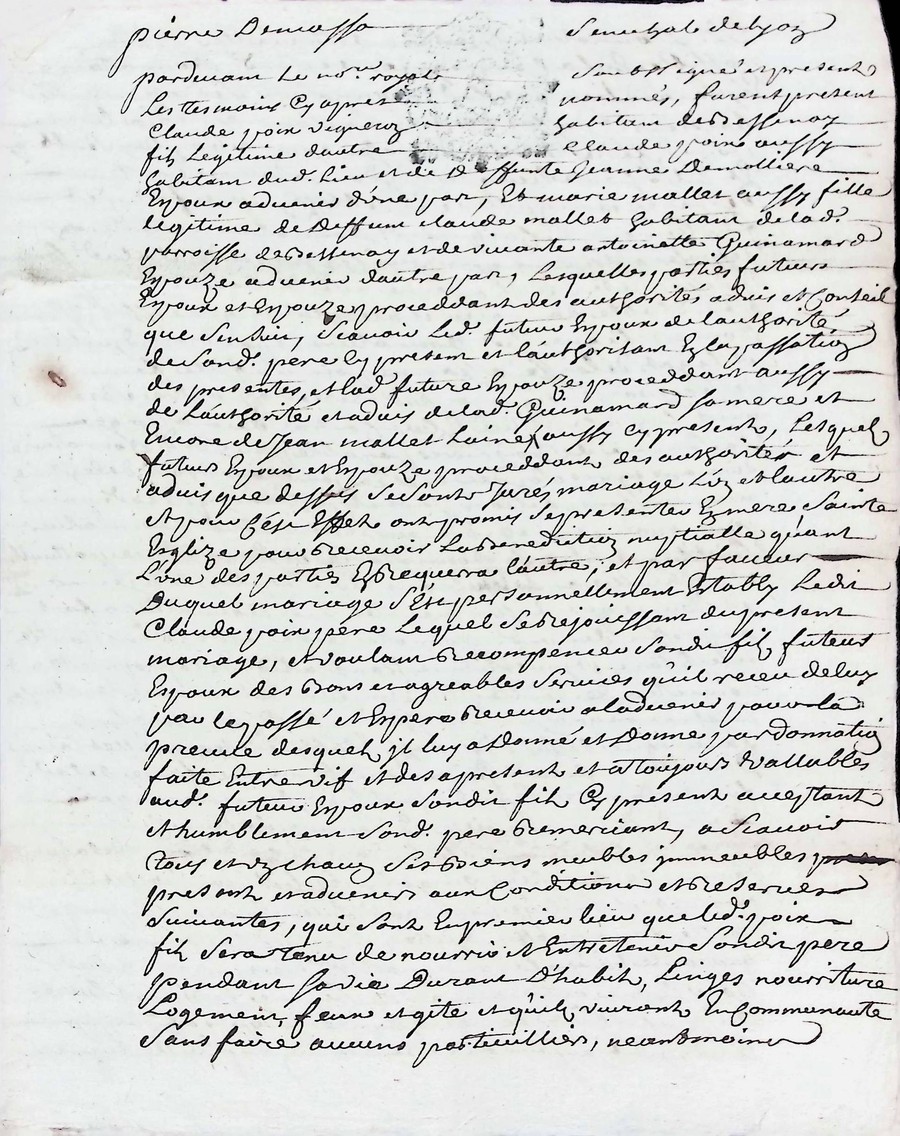 pierre Demasso Senechal de lyoŋ
pardevant le no.re royal Soubssigné et present
Les tesmoins Cy apres nommés, furent present
Claude poix vigneroŋ habitant de Bessenay
fils Legitime dautre Claude poix aussy
habitant dud. Lieu et de deffunte Jeanne Demolliere
Espoux advenir d'une part, Et marie mallet aussy fille
legitime de deffunt claude mallet habitant de lad.
parroisse de Bessenay et de vivante antoinette Guinamard
Espouze advenir dautre part, Lesquelles parties futurs
Espoux et Espouze proceddant des authorités advis et Conseil
que sensuit, scavoir led. futur Espoux de lauthorité
de Sond. pere Cy present et l'authorisant En la passatioŋ
des presentes, et lad. future Espouze proceddant aussy
de Lauthorité et advis de lad. Guinamard sa mere et
Encore de Jean mallet Lainé aussy Cy present, Lesquels
futurs Espoux et Espouze proceddant des authorités et
advis que dessus se sont Jurés mariage L'uŋ et lautre
et pour Cest Effet ont promis se presenter En mere Sainte
Esglize pour Recevoir La Benedictioŋ nuptialle quant
L'une des parties En Requerra l'autre, et par faveur
Duquel mariage s'est personnellement Estably Ledit
Claude poix pere Lequel se Rejouissant du present
mariage, et voulant Recompencer Sondit fils futeur
Espoux des Bons et agreables Services quil receu de luy
par le passé et Espere Recevoir a ladvenir pour la
preuve desquels, il luy a Donné et Donne par donnatioŋ
faite Entre vif et des a present et a toujours vallables
aud. futeur Espoux sondit fils Cy present acceptant
et humblement Sond. pere Remerciant, a Scavoir
tous et uŋ chacuŋ ses Biens meubles immeubles
present et advenir aux Conditions et Reserves
Suivantes, qui sont En premier lieu que led. poix
fils Sera tenu de nourrir et Entretenir Sondit pere
pendant sa vie Durant D'habit, Linges nourriture
Logement, feux et gite et quils vivront En Communauté
Sans faire aucuns particulliers, neantmoins